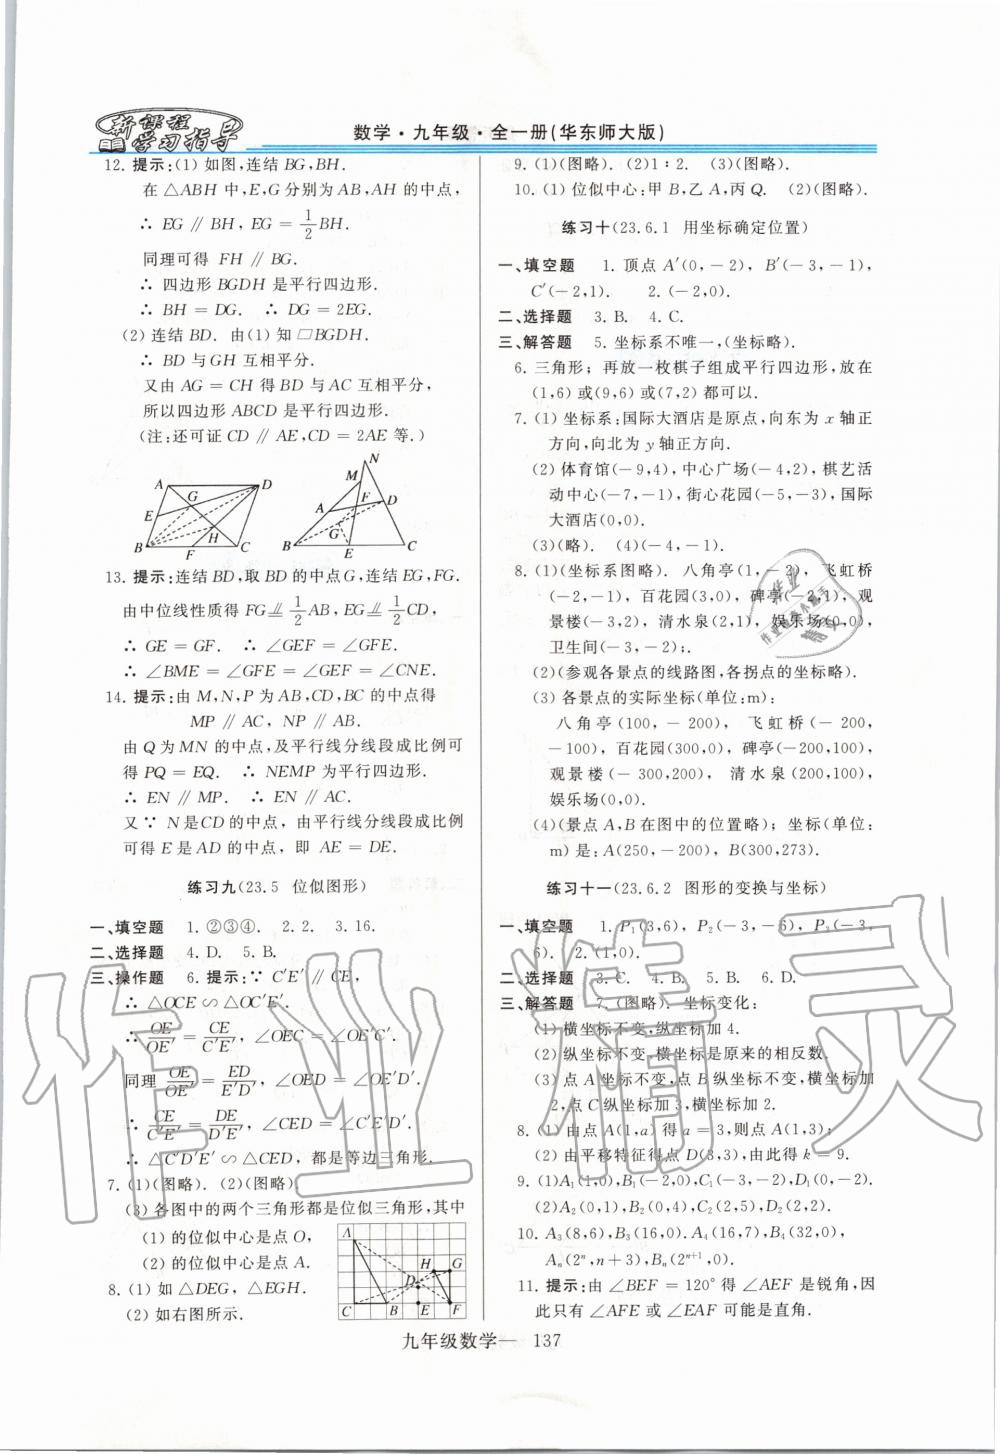 新课程
学习指导
数学·九年级·全一册(华东师大版)
12. 提示:(1) 如图,连结 BG,BH.
在 △ABH 中,E,G 分别为 AB,AH 的中点,
∴ EG ∥ BH, EG = 1/2 BH.
同理可得 FH ∥ BG.
∴ 四边形 BGDH 是平行四边形.
∴ BH = DG. ∴ DG = 2EG.
(2) 连结 BD. 由(1) 知 □BGDH.
∴ BD 与 GH 互相平分.
又由 AG = CH 得 BD 与 AC 互相平分.
所以四边形 ABCD 是平行四边形.
(注:还可证 CD ∥ AE,CD = 2AE 等.)
A D G E H B F C
N M A F D G B E C
13. 提示:连结 BD,取 BD 的中点 G,连结 EG,FG.
由中位线性质得 FG ⫽ 1/2 AB,EG ⫽ 1/2 CD,
∴ GE = GF. ∴ ∠GEF = ∠GFE.
∴ ∠BME = ∠GFE = ∠GEF = ∠CNE.
14. 提示:由 M,N,P 为 AB,CD,BC 的中点得
MP ∥ AC, NP ∥ AB.
由 Q 为 MN 的中点,及平行线分线段成比例可
得 PQ = EQ. ∴ NEMP 为平行四边形.
∴ EN ∥ MP. ∴ EN ∥ AC.
又 ∵ N 是 CD 的中点,由平行线分线段成比例
可得 E 是 AD 的中点,即 AE = DE.
练习九(23.5 位似图形)
一、填空题 1. ②③④. 2. 2. 3. 16.
二、选择题 4. D. 5. B.
三、操作题 6. 提示:∵ C′E′ ∥ CE,
∴ △OCE ∽ △OC′E′.
∴ OE/OE′ = CE/C′E′, ∠OEC = ∠OE′C′.
同理 OE/OE′ = ED/E′D′, ∠OED = ∠OE′D′.
∴ CE/C′E′ = DE/D′E′, ∠CED = ∠C′E′D′.
∴ △C′D′E′ ∽ △CED, 都是等边三角形.
7. (1)(图略). (2)(图略).
(3) 各图中的两个三角形都是位似三角形,其中
(1) 的位似中心是点 O,
(2) 的位似中心是点 A.
8. (1) 如 △DEG, △EGH.
(2) 如右图所示.
A H G D C B E F
9. (1)(图略). (2)1∶2. (3)(图略).
10. (1) 位似中心:甲 B,乙 A,丙 Q. (2)(图略).
练习十(23.6.1 用坐标确定位置)
一、填空题 1. 顶点 A′(0,-2), B′(-3,-1),
C′(-2,1). 2. (-2,0).
二、选择题 3. B. 4. C.
三、解答题 5. 坐标系不唯一,(坐标略).
6. 三角形; 再放一枚棋子组成平行四边形,放在
(1,6) 或(9,6) 或(7,2) 都可以.
7. (1) 坐标系:国际大酒店是原点,向东为 x 轴正
方向,向北为 y 轴正方向.
(2) 体育馆(-9,4),中心广场(-4,2),棋艺活
动中心(-7,-1),街心花园(-5,-3),国际
大酒店(0,0).
(3)(略). (4)(-4,-1).
8. (1)(坐标系图略). 八角亭(1,-2), 飞虹桥
(-2,-1), 百花园(3,0), 碑亭(-2,1), 观
景楼(-3,2), 清水泉(2,1), 娱乐场(0,0),
卫生间(-3,-2);.
(2)(参观各景点的线路图,各拐点的坐标略)
(3) 各景点的实际坐标(单位:m):
八角亭(100,-200), 飞虹桥(-200,
-100), 百花园(300,0), 碑亭(-200,100),
观景楼(-300,200), 清水泉(200,100),
娱乐场(0,0).
(4)(景点 A,B 在图中的位置略); 坐标(单位:
m) 是: A(250,-200), B(300,273).
练习十一(23.6.2 图形的变换与坐标)
一、填空题 1. P₁(3,6), P₂(-3,-6), P₃(-3,
6). 2. (1,0).
二、选择题 3. C. 4. B. 5. B. 6. D.
三、解答题 7. (图略). 坐标变化:
(1) 横坐标不变,纵坐标加 4.
(2) 纵坐标不变,横坐标是原来的相反数.
(3) 点 A 坐标不变,点 B 纵坐标不变,横坐标加
2,点 C 纵坐标加 3,横坐标加 2.
8. (1) 由点 A(1,a) 得 a = 3,则点 A(1,3);
(2) 由平移特征得点 D(3,3),由此得 k = 9.
9. (1)A₁(1,0),B₁(-2,0),C₁(-3,-2),D₁(0,-2).
(2)A₂(0,1),B₂(0,4),C₂(2,5),D₂(2,2).
10. A₃(8,6),B₃(16,0). A₄(16,7),B₄(32,0),
Aₙ(2ⁿ,n+3),Bₙ(2ⁿ⁺¹,0).
11. 提示:由 ∠BEF = 120° 得 ∠AEF 是锐角,因
此只有 ∠AFE 或 ∠EAF 可能是直角.
九年级数学— 137
作业精灵